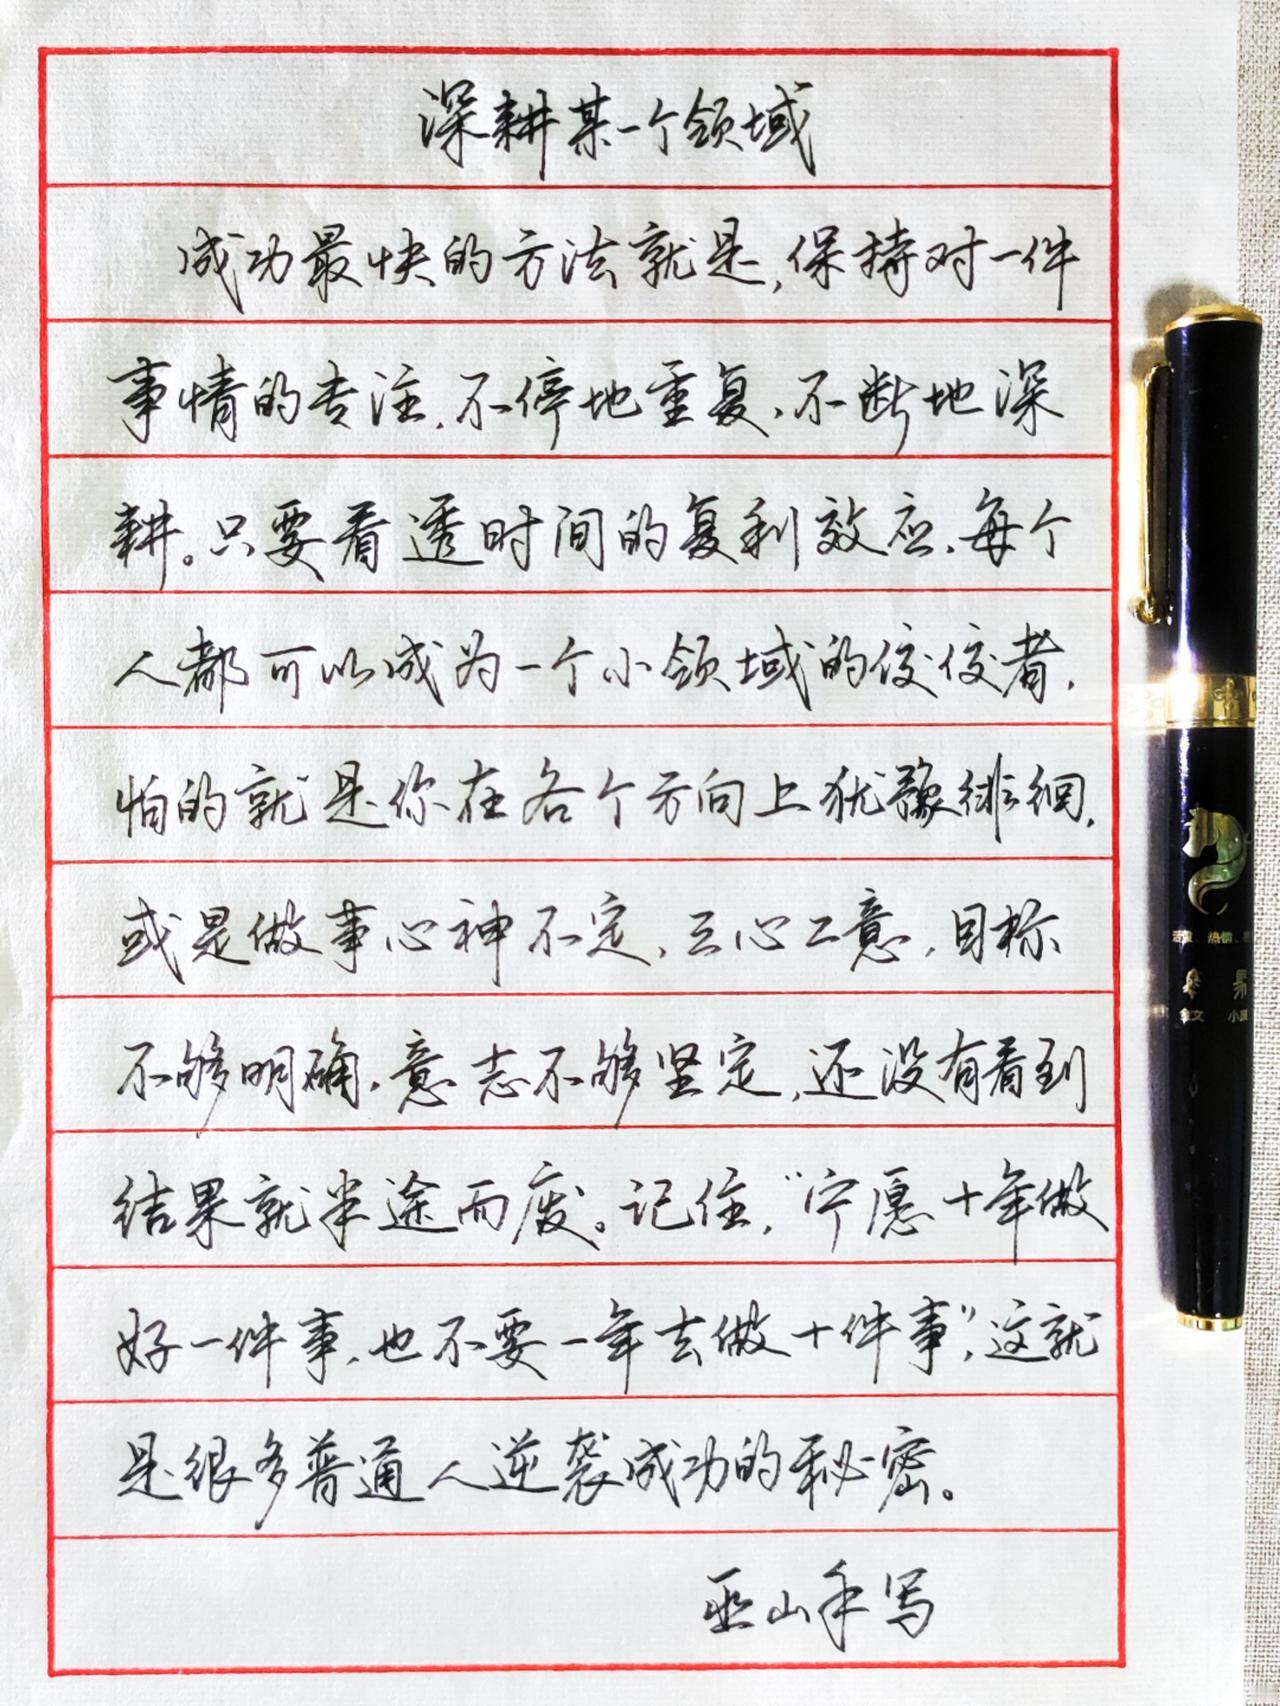 深耕某一个领域
成功最快的方法就是,保持对一件
事情的专注,不停地重复,不断地深
耕。只要看透时间的复利效应,每个
人都可以成为一个小领域的佼佼者,
怕的就是你在各个方向上犹豫徘徊,
或是做事心神不定,三心二意,目标
不够明确,意志不够坚定,还没有看到
结果就半途而废。记住,“宁愿十年做
好一件事,也不要一年去做十件事”,这就
是很多普通人逆袭成功的秘密。
巫山手写
热情
金文 小篆